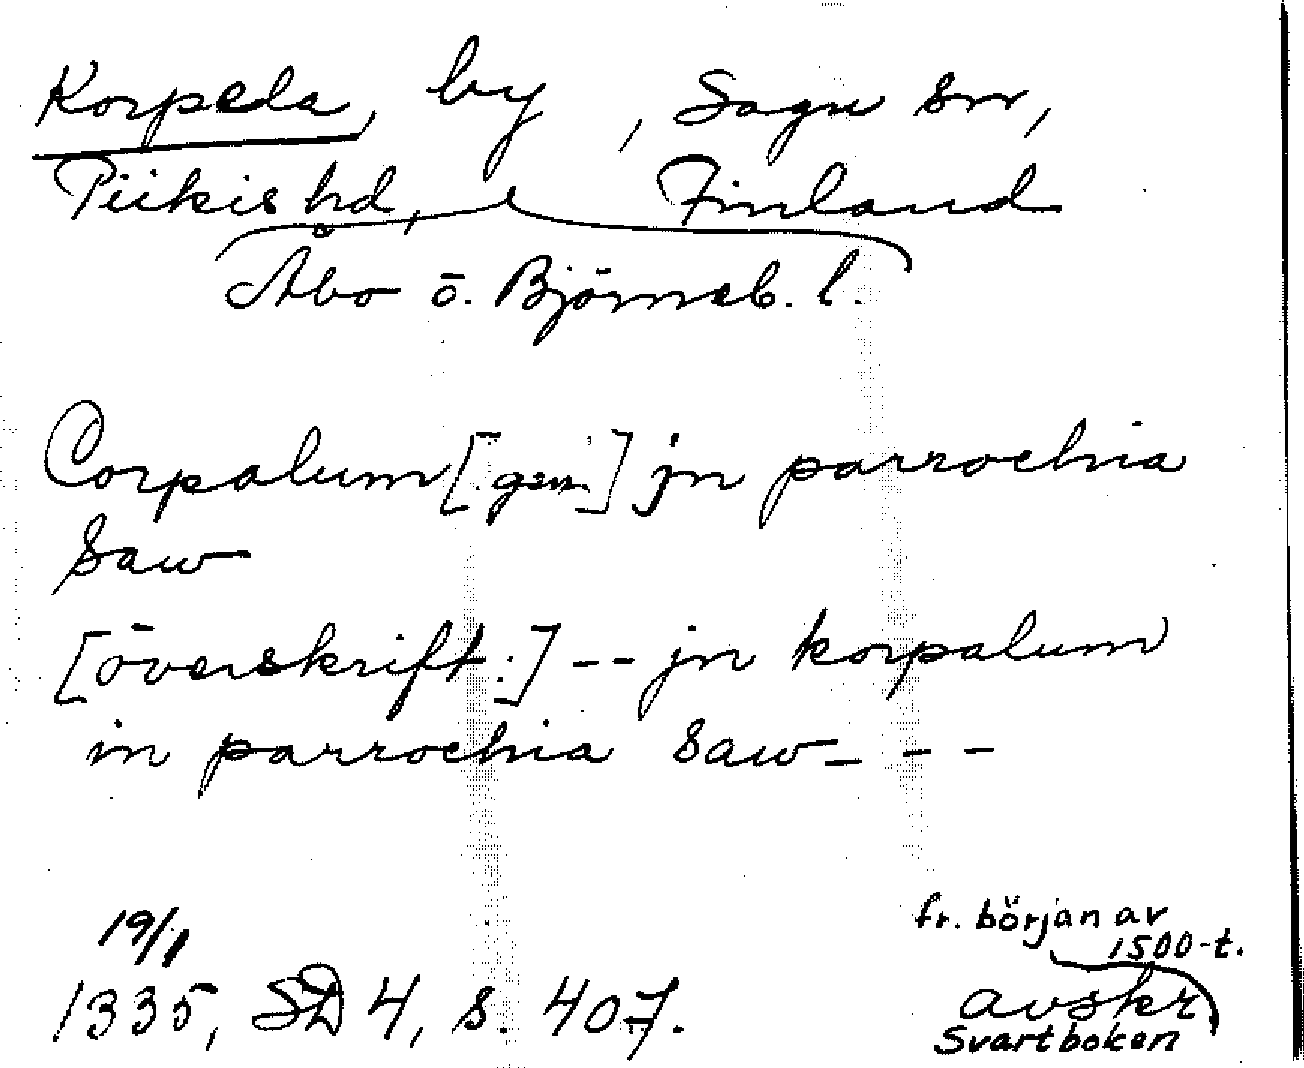 Korpela, by, Sagu sn,
Piikis hd, Finland
Åbo o. Björneb. l.
Corpalum [gen.] jn parrochia
Saw
[överskrift:] -- jn korpalum
in parrochia Saw - - -
19/1
1335, SD 4, s. 407.
fr. början av
1500-t.
avskr.
Svartboken